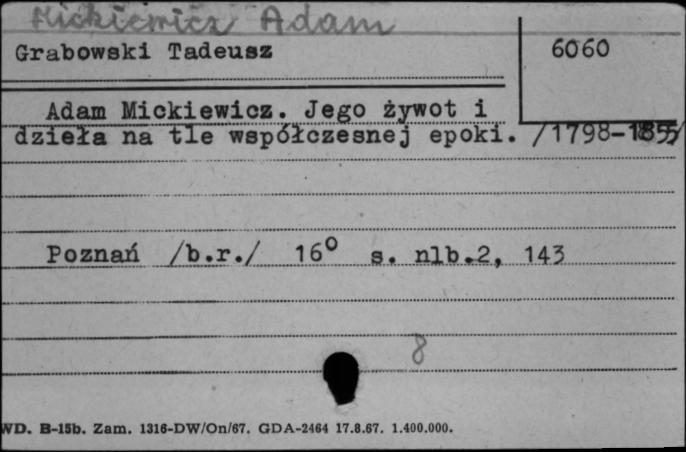 Mickiewicz Adam
Grabowski Tadeusz
6060
Adam Mickiewicz. Jego żywot i
dzieła na tle współczesnej epoki. /1798-1855/
Poznań /b.r./ 16⁰ s. nlb.2, 143
8
WD. B-15b. Zam. 1316-DW/On/67. GDA-2464 17.8.67. 1.400.000.